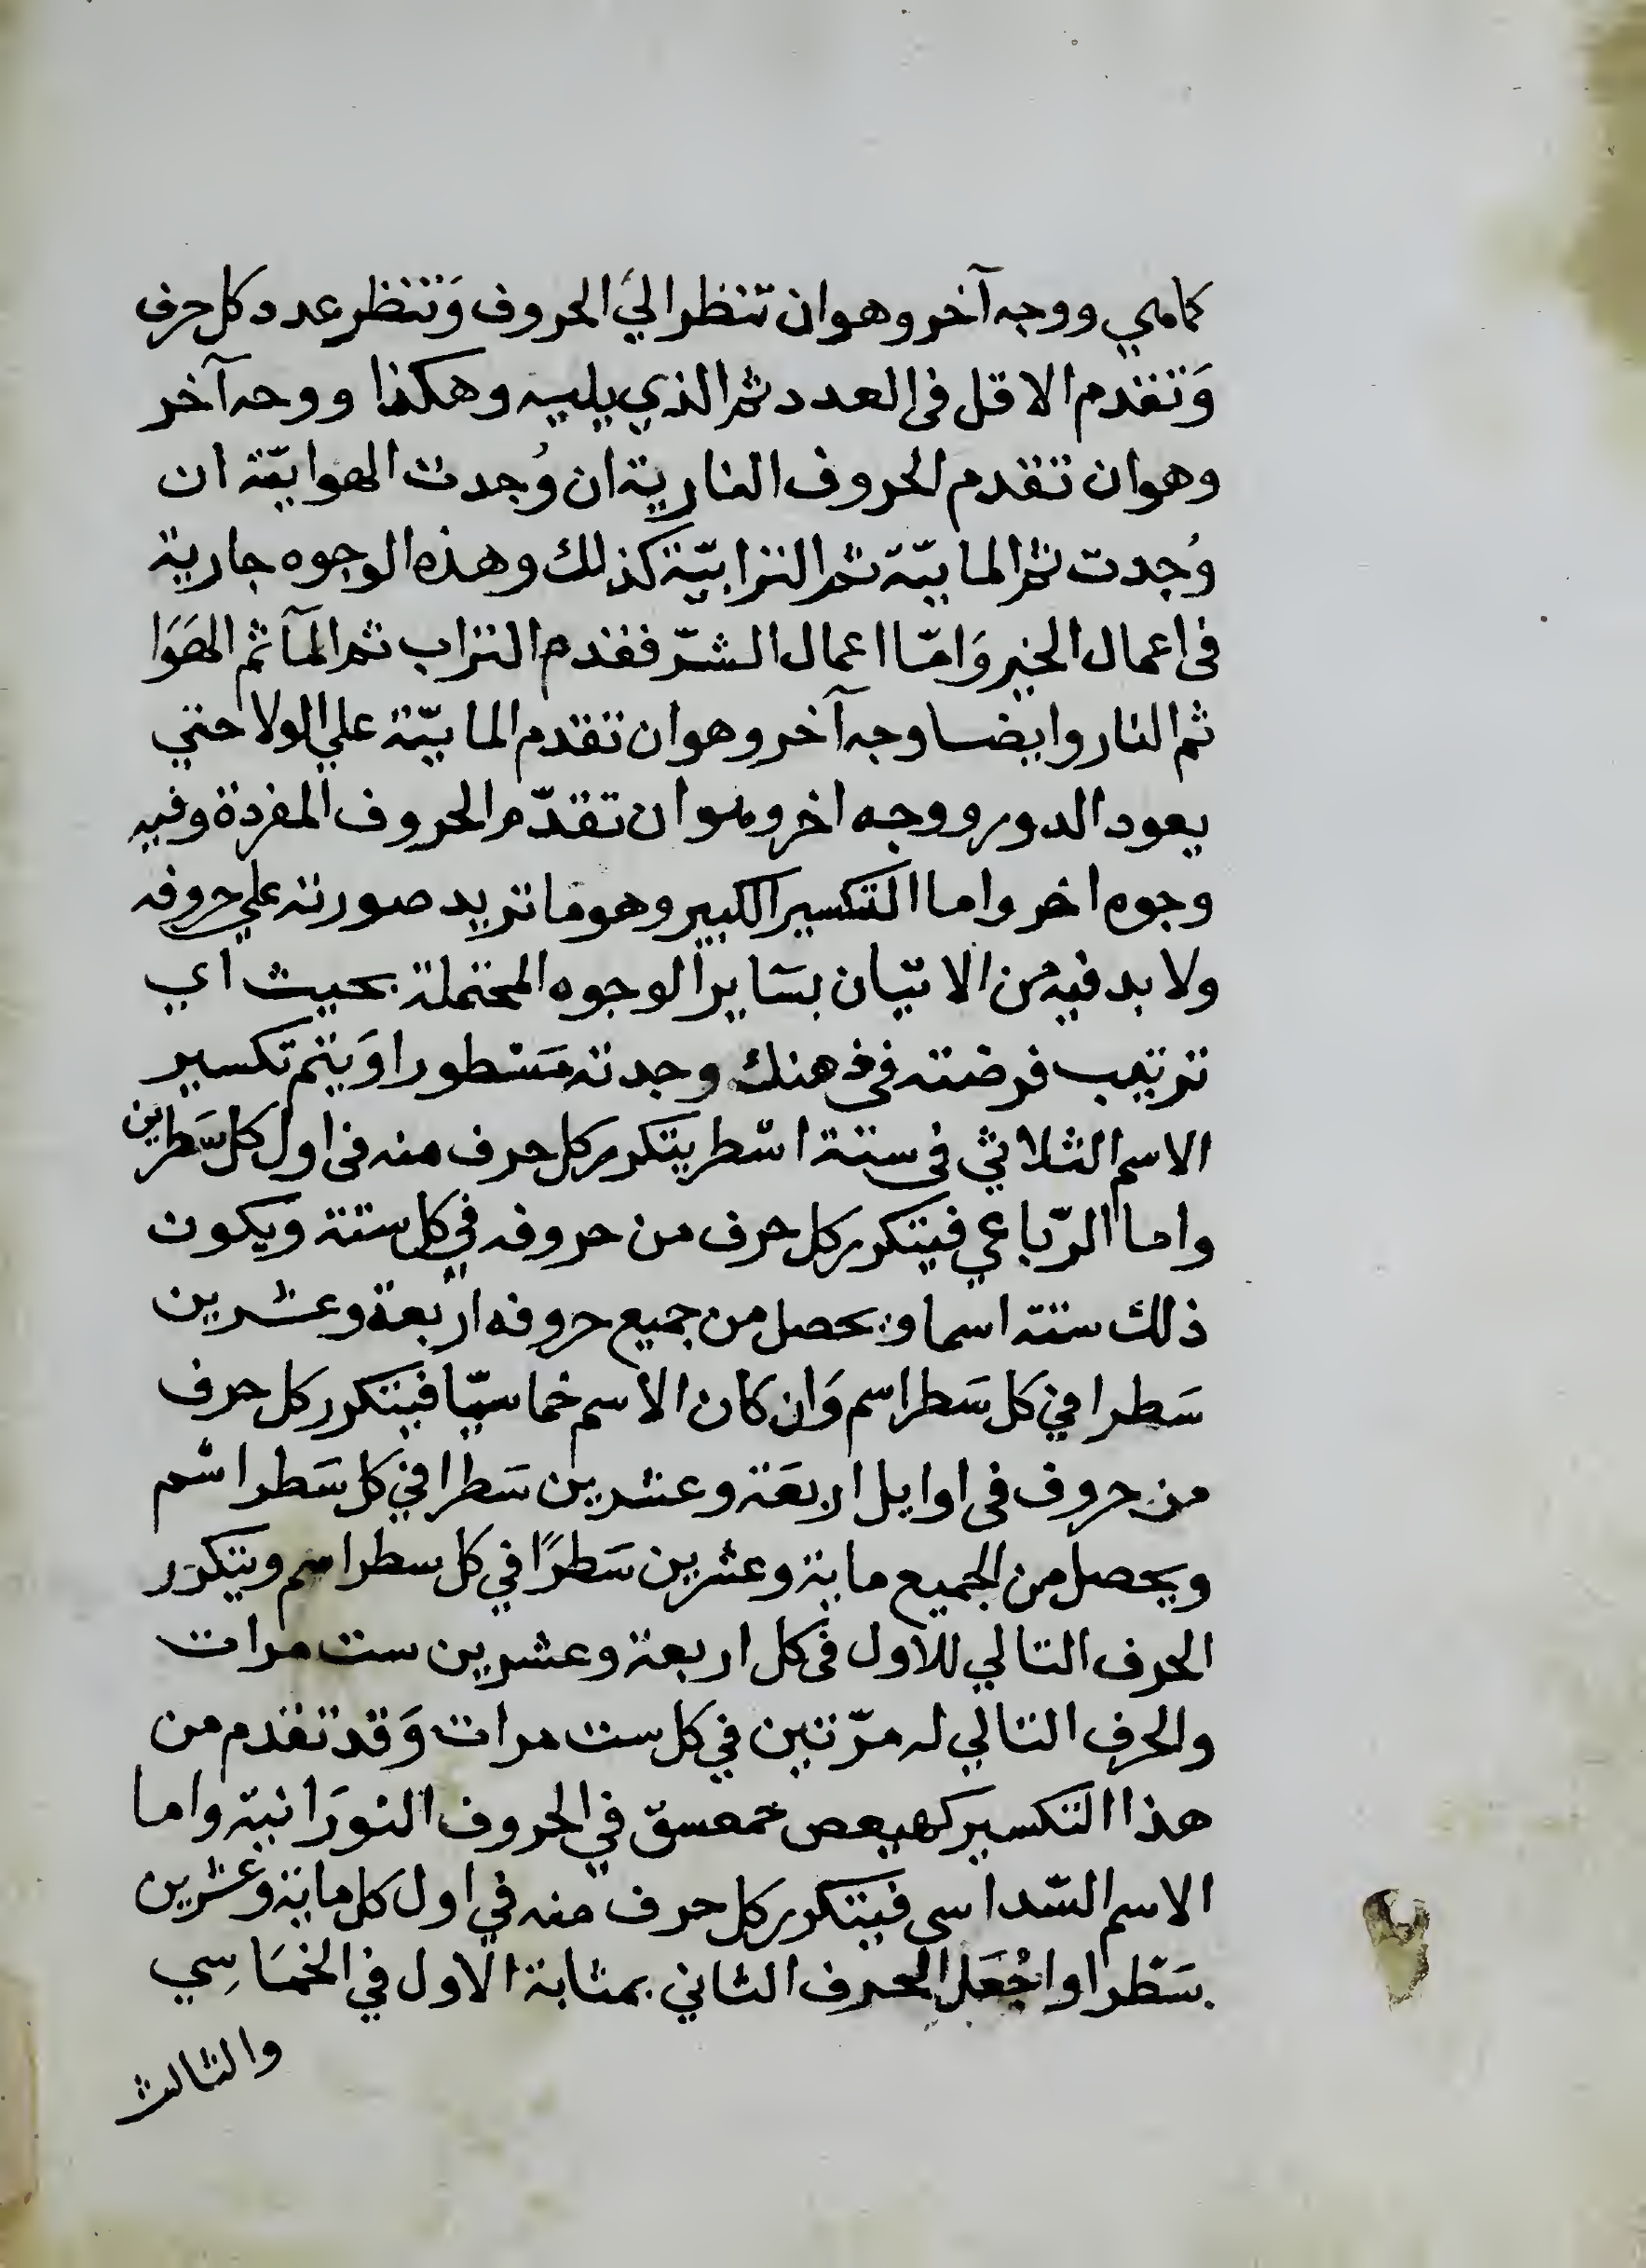 كما هي ووجه آخر وهو ان تنظر الي الحروف وَتنظر عدد كل حرف
وَتقدم الاقل في العدد ثم الذي يليه وهكذا ووجه آخر
وهو ان تقدم الحروف النارية ان وُجدت الهوايّة ان
وُجدت ثم المايّة ثم الترابيّة كذلك وهذه الوجوه جارية
في اعمال الخير وَامّا اعمال الشرّ فقدم التراب ثم المآ ثم الهَوَا
ثم النار وايضا وجه آخر وهو ان تقدم المايّة علي الولا حتي
يعود الدور ووجه اخر وهو ان تقدّم الحروف المفردة وفيه
وجوه اخر واما التكسير الكبير وهو ما تزيد صورته علي حروفه
ولا بد فيه من الاتيان بسَاير الوجوه المحتملة بحيث اي
ترتيب فرضته في ذهنك وجدته مَسْطورا وَيتم تكسير
الاسم الثلاثي في ستة اسْطر يتكرر كل حرف منه في اول كل سَطرين
واما الرّباعي فيتكرر كل حرف من حروفه في كل ستة ويكون
ذلك ستة اسما ويحصل من جميع حروفه اربعة وعشرين
سَطرا في كل سَطر اسم وَان كان الاسم خماسيّا فيتكرر كل حرف
من حروف في اوايل اربعَة وعشرين سَطرا في كل سَطر اسْم
ويحصل من الجميع ماية وعشرين سَطرًا في كل سطر اسم ويتكرر
الحرف التالي للاول في كل اربعة وعشرين ست مرات
والحرف التالي له مرّتين في كل ست مرات وَقد تقدم من
هذا التكسير كهيعص حمعسق في الحروف النورَانية واما
الاسم السّداسي فيتكرر كل حرف منه في اول كل ماية وعشرين
سَطرا واجْعَل الحرف الثاني بمثابة الاول في الخمَاسِي
والثالث